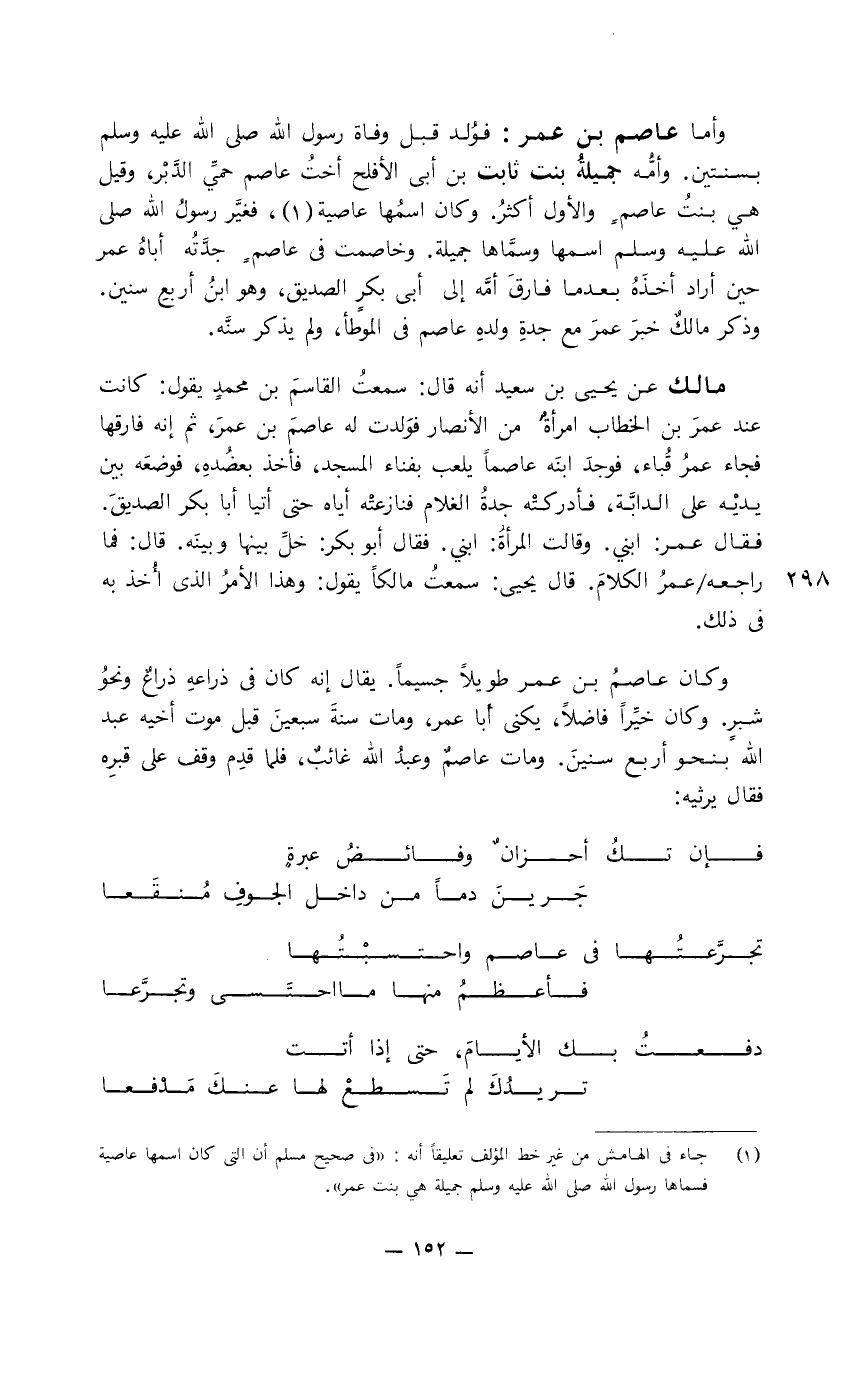 وأما عاصم بن عمر : فوُلد قبل وفاة رسول الله صلى الله عليه وسلم
بسنتين. وأمُّه جميلةُ بنت ثابت بن أبى الأفلح أختُ عاصم حميِّ الدَّبْر، وقيل
هي بنتُ عاصمٍ والأول أكثرُ. وكان اسمُها عاصية (١) ، فغيَّر رسولُ الله صلى
الله عليه وسلم اسمها وسمَّاها جميلة. وخاصمت فى عاصمٍ جدَّتُه أباهُ عمر
حين أراد أخذَهُ بعدما فارقَ أمَّه إلى أبى بكرٍ الصديق، وهو ابنُ أربع سنين.
وذكر مالكٌ خبرَ عمرَ مع جدةِ ولدهِ عاصم فى الموطأ، ولم يذكر سنَّه.
مالك عن يحيى بن سعيد أنه قال: سمعتُ القاسمَ بن محمدٍ يقول: كانت
عند عمرَ بن الخطاب امرأةٌ من الأنصار فوَلدت له عاصمَ بن عمرَ، ثم إنه فارقها
فجاء عمرُ قُباء، فوجدَ ابنَه عاصماً يلعب بفناء المسجد، فأخذ بعضُدهِ، فوضعَه بين
يديْه على الدابَّة، فأدركتْه جدةُ الغلام فنازعتْه أياه حتى أتيا أبا بكر الصديقَ.
فقال عمر: ابني. وقالت المرأةُ: ابني. فقال أبو بكر: خلِّ بينها وبينَه. قال: فما
راجعه/عمرُ الكلامَ. قال يحيى: سمعتُ مالكاً يقول: وهذا الأمرُ الذى أُخذ به ٢٩٨
فى ذلك.
وكان عاصمُ بن عمر طويلاً جسيماً. يقال إنه كان فى ذراعهِ ذراعٌ ونحوُ
شبرٍ. وكان خيِّراً فاضلاً، يكنى أبا عمر، ومات سنةَ سبعينَ قبل موت أخيه عبد
الله بنحو أربع سنينَ. ومات عاصمٌ وعبدُ الله غائبٌ، فلما قدِم وقف على قبرِه
فقال يرثيه:
فإن تكُ أحزانٌ وفائضُ عبرةٍ
جَرينَ دماً من داخل الجوفِ مُنقَعا
تجرَّعتُها فى عاصم واحتسبْتُها
فأعظمُ منها مااحتَسى وتجرَّعا
دفعتُ بك الأيامَ، حتى إذا أتت
تريدُكَ لم تَسطعْ لها عنكَ مَدْفعا
(١) جاء فى الهامش من غير خط المؤلف تعليقاً أنه : «فى صحيح مسلم أن التى كان اسمها عاصية
فسماها رسول الله صلى الله عليه وسلم جميلة هي بنت عمر».
— ١٥٢ —